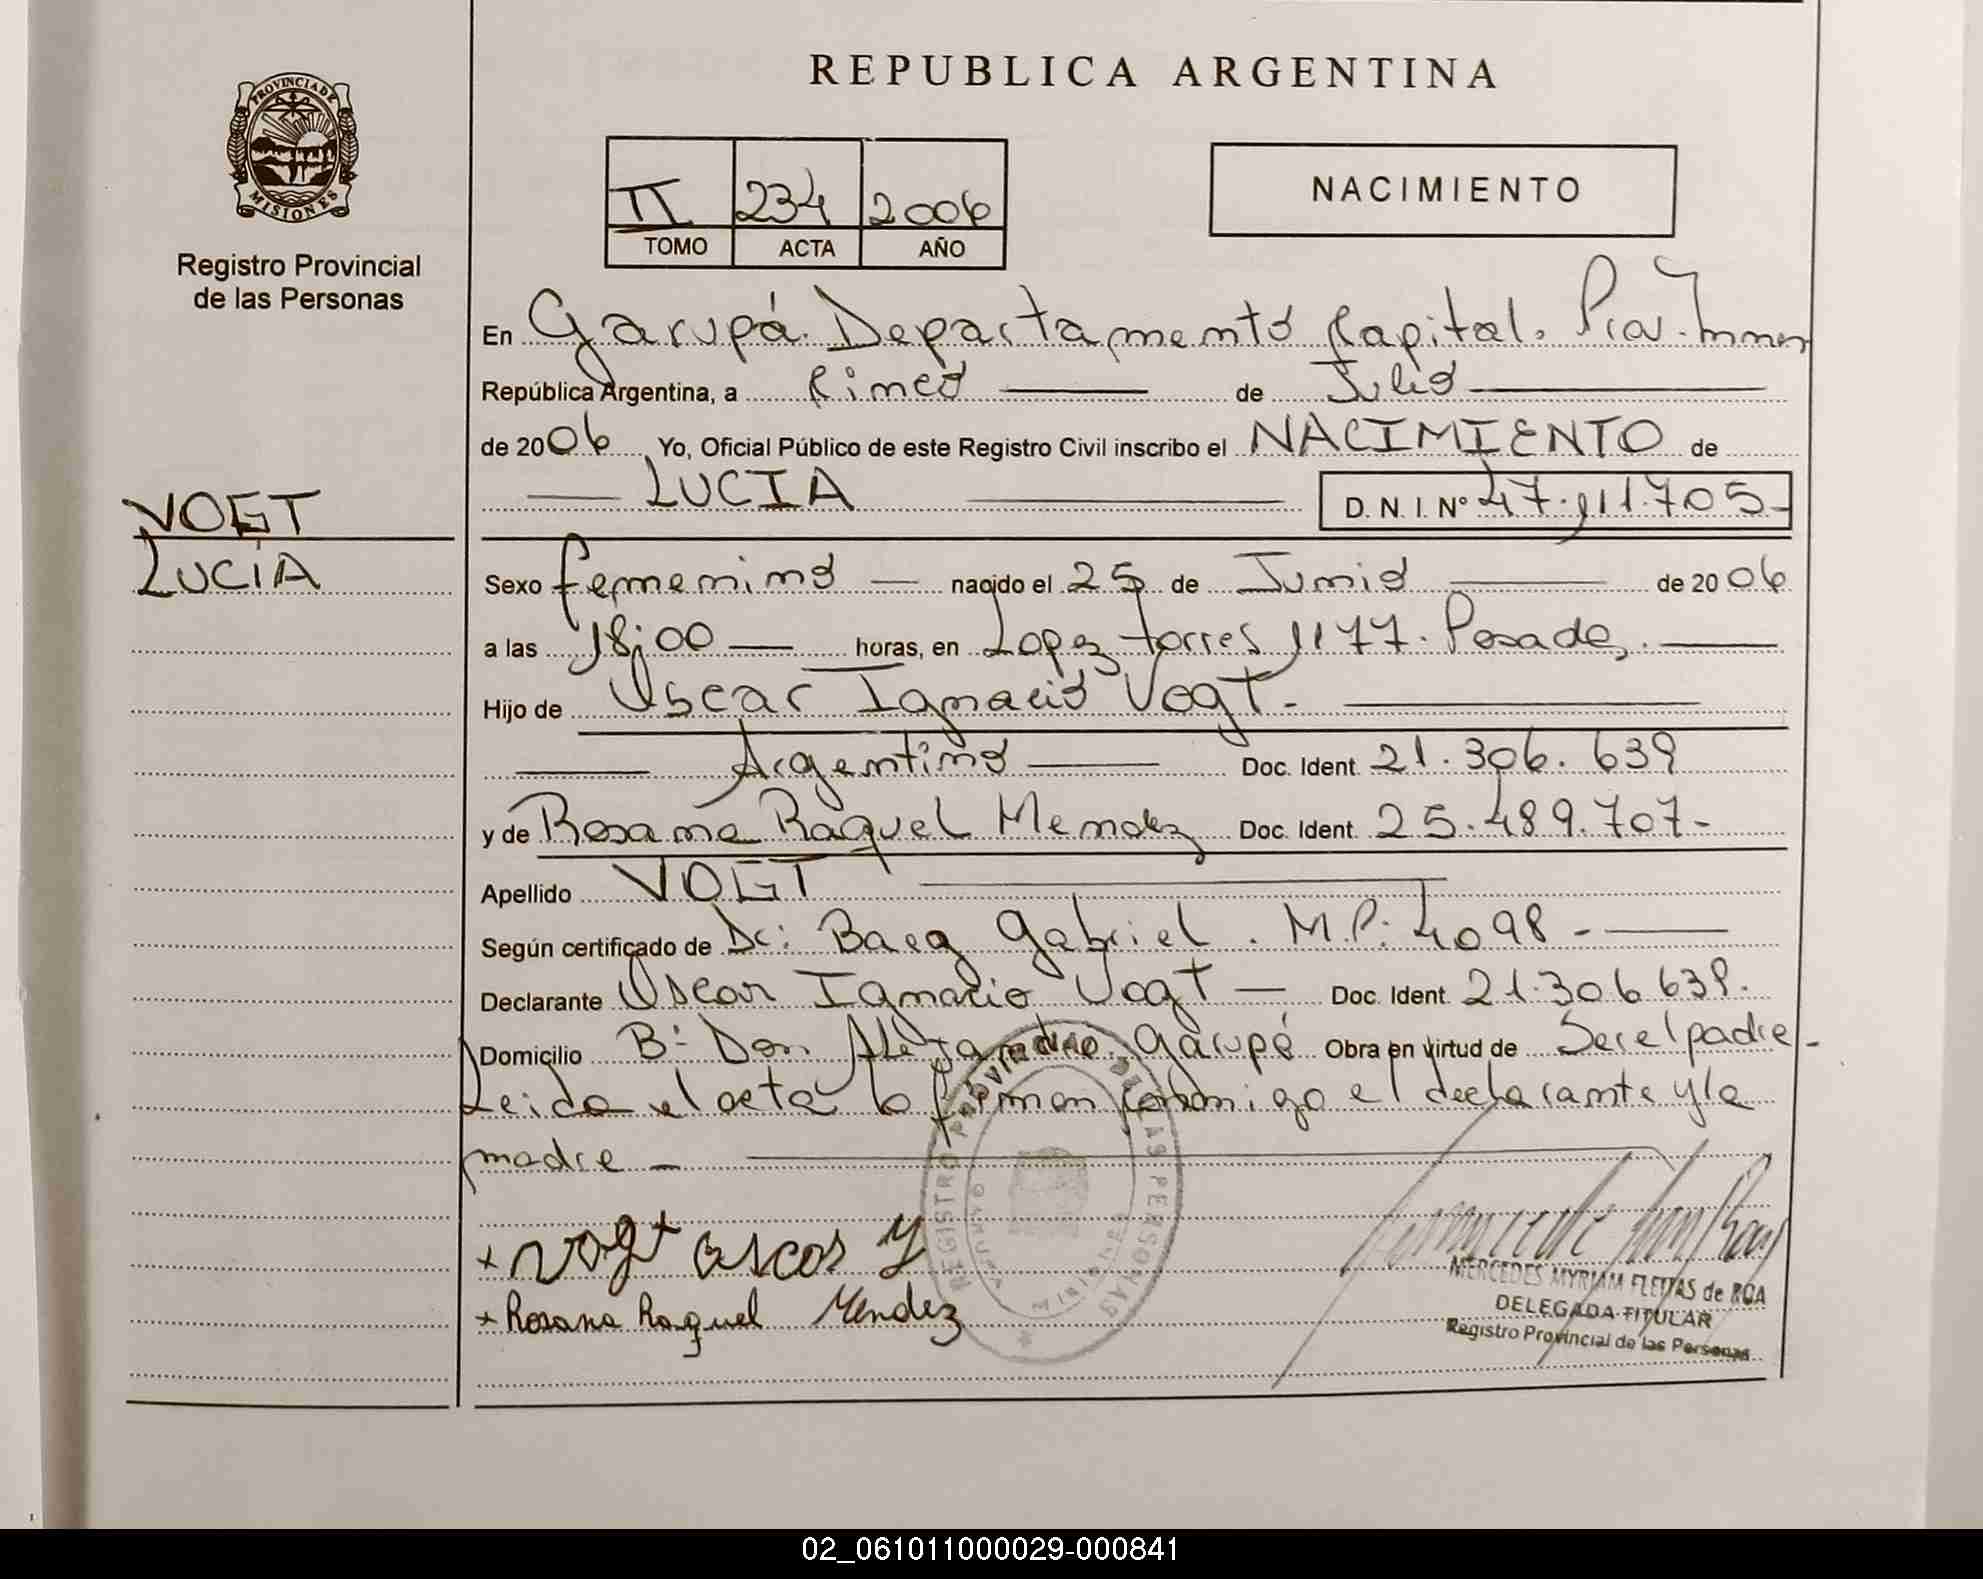 REPUBLICA ARGENTINA
PROVINCIA DE
MISIONES
Registro Provincial
de las Personas
II 234 2006
TOMO ACTA AÑO
NACIMIENTO
En Garupá. Departamento Capital. Prov.
República Argentina, a Cinco de Julio
de 2006 Yo, Oficial Público de este Registro Civil inscribo el NACIMIENTO de
LUCIA D. N. I. Nº 47.111.705-
VOGT
LUCÍA
Sexo femenino nacido el 25 de Junio de 2006
a las 18:00 horas, en Lopez torres 1177. Posadas.
Hijo de Oscar Ignacio Vogt.-
Argentino Doc. Ident. 21.306.639
y de Rosana Raquel Mendez Doc. Ident. 25.489.707-
Apellido VOGT
Según certificado de Dr: Baez Gabriel. M.P: 4098-
Declarante Oscar Ignacio Vogt Doc. Ident. 21.306.639.
Domicilio Bº Don Alejandro. Garupá Obra en virtud de Ser el padre-
Leida el acta la firman conmigo el declarante y la
madre-
+ Vogt oscar Y
+ Rosana Raquel Mendez
REGISTRO PROVINCIAL DE LAS PERSONAS
GARUPA
MISIONES
MERCEDES MYRIAM FLEITAS de ROA
DELEGADA TITULAR
Registro Provincial de las Personas
02_061011000029-000841